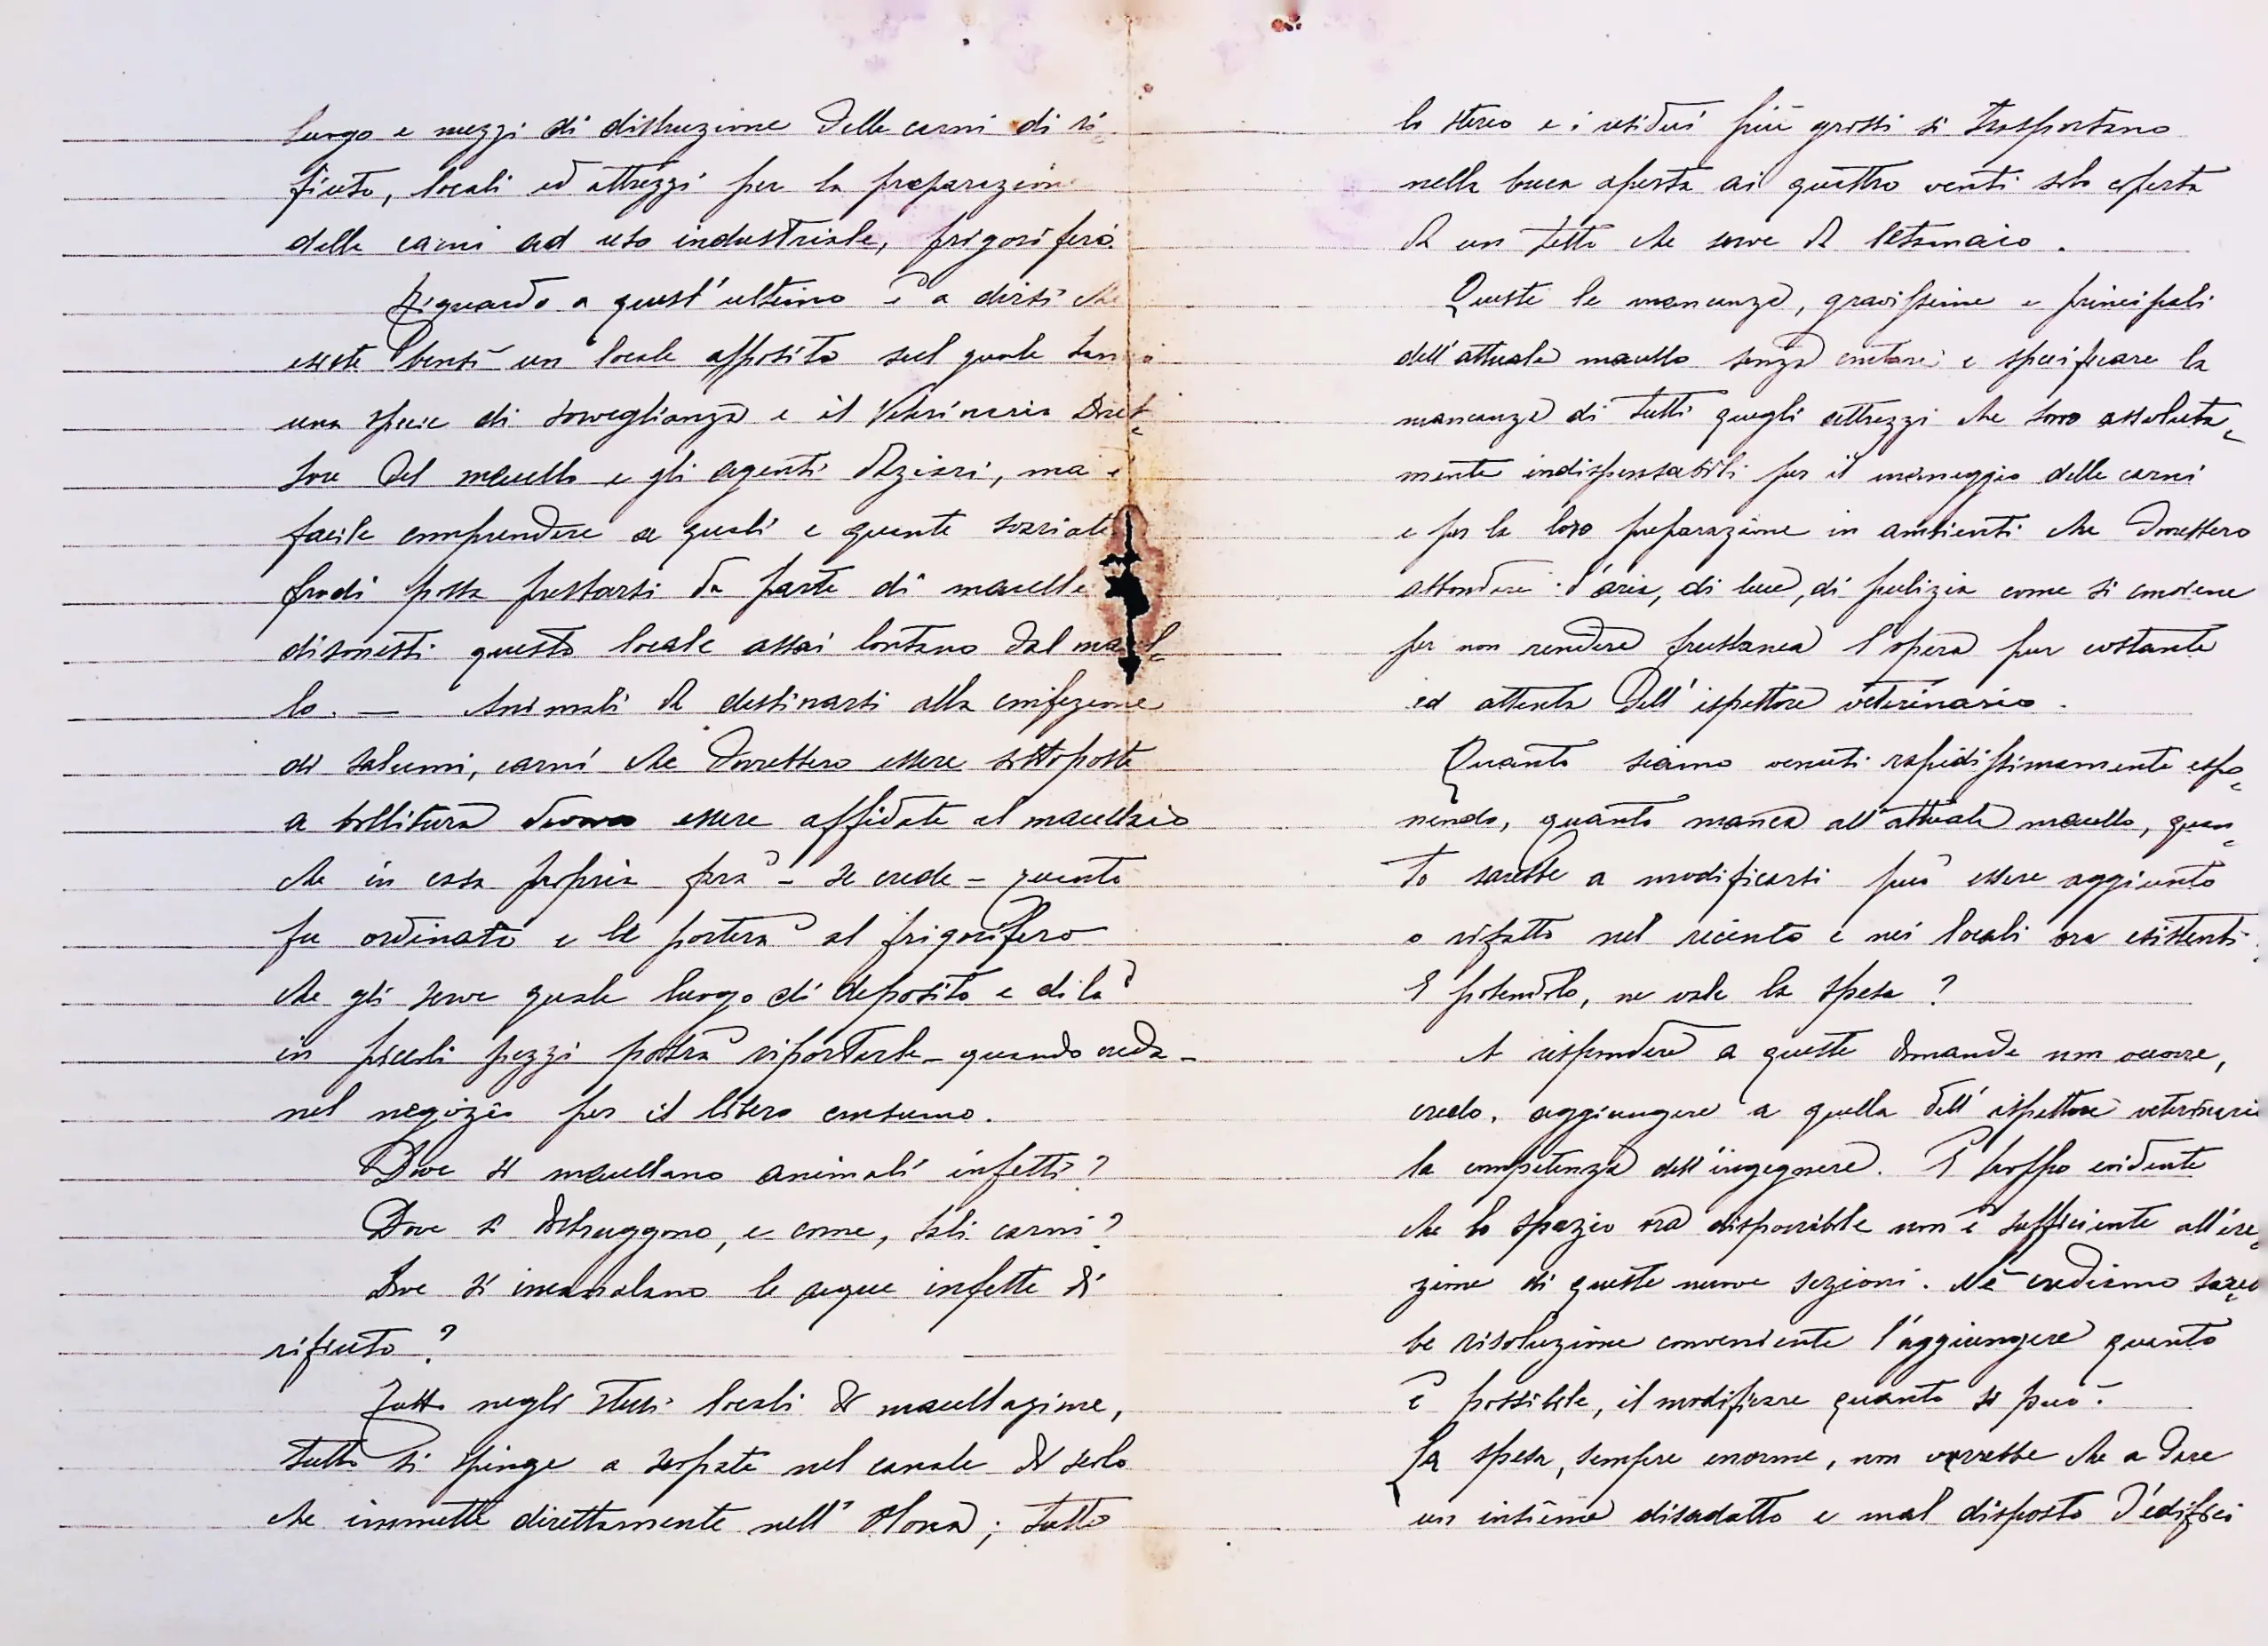 luogo e mezzi di distruzione delle carni di ri-
fiuto, locali ed attrezzi per la preparazione
delle carni ad uso industriale, frigorifero.
Riguardo a quest'ultimo è a dirsi che
esiste bensì un locale apposito sul quale
una specie di sorveglianza e il Veterinario Diret-
tore del macello e gli agenti daziari, ma è
facile comprendere a quali e quante svariate
frodi possa prestarsi da parte di macellai
disonesti questo locale assai lontano dal macel-
lo. — Animali da destinarsi alla confezione
di salumi, carni che dovrebbero essere sottoposte
a bollitura devono essere affidate al macellaio
che in casa propria farà - se crede - quanto
fu ordinato e le porterà al frigorifero
che gli serve quale luogo di deposito e di là
in piccoli pezzi potrà riportarle - quando creda -
nel negozio per il libero consumo.
Dove si macellano animali infetti?
Dove si distruggono, e come, tali carni?
Dove si incanalano le acque infette di
rifiuto?
Tutto negli stessi locali di macellazione,
tutto si spinge a scopate nel canale di scolo
che immette direttamente nell'Olona; tutto
lo sterco e i residui più grossi si trasportano
nella buca aperta ai quattro venti solo coperta
da un tetto che serve da letamaio.
Queste le mancanze, gravissime e principali
dell'attuale macello senza contare e specificare la
mancanza di tutti quegli attrezzi che sono assoluta-
mente indispensabili per il maneggio delle carni
e per la loro preparazione in ambienti che dovrebbero
abbondare d'aria, di luce, di pulizia come si conviene
per non rendere frustanea l'opera pur costante
ed attenta dell'ispettore veterinario.
Quanto siamo venuti rapidissimamente espo-
nendo, quanto manca all'attuale macello, quan-
to sarebbe a modificarsi può essere aggiunto
o rifatto nel recinto e nei locali ora esistenti?
E potendolo, ne vale la spesa?
A rispondere a queste domande non occorre,
credo, aggiungere a quella dell'ispettore veterinario
la competenza dell'ingegnere. È troppo evidente
che lo spazio ora disponibile non è sufficiente all'ere-
zione di queste nuove sezioni. Nè crediamo sareb-
be risoluzione conveniente l'aggiungere quanto
è possibile, il modificare quanto si può.
La spesa, sempre enorme, non varrebbe che a dare
un insieme disadatto e mal disposto d'edifici